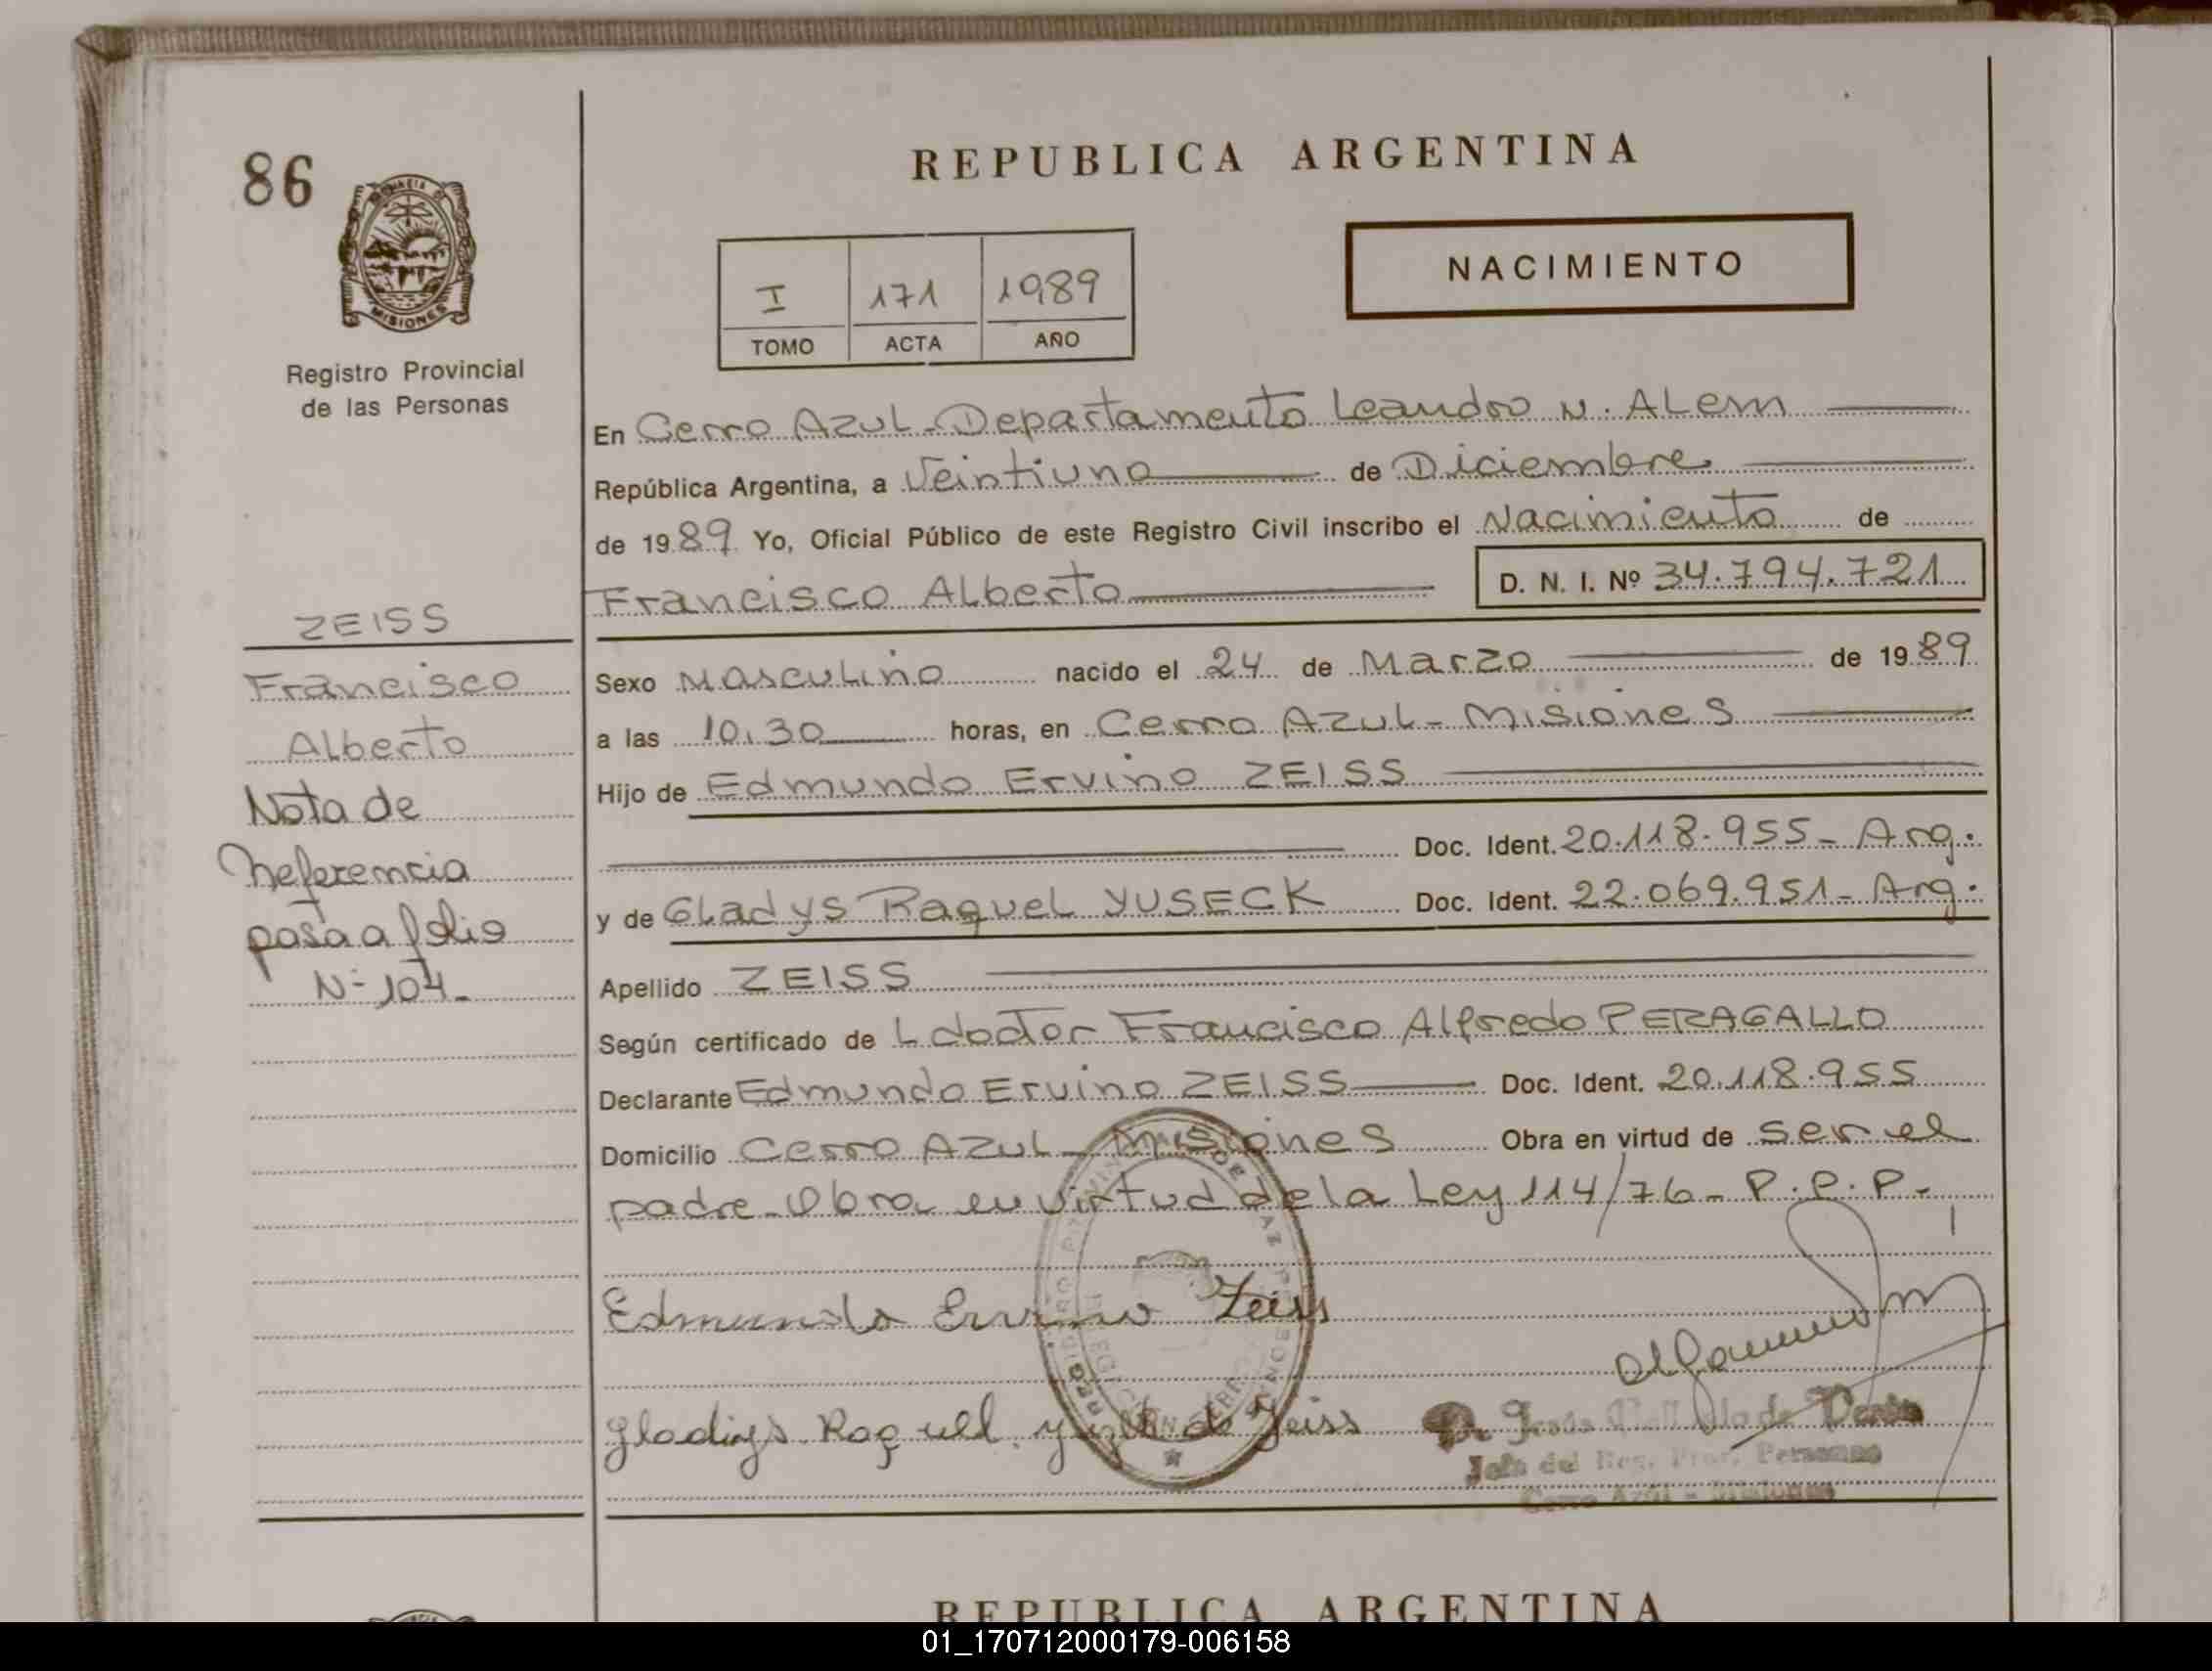 86
MISIONES
Registro Provincial
de las Personas
ZEISS
Francisco
Alberto
Nota de
Referencia
pasa a folio
N- 104-
REPUBLICA ARGENTINA
NACIMIENTO
I 171 1989
TOMO ACTA AÑO
En Cerro Azul - Departamento Leandro N. Alem
República Argentina, a Veintiuno de Diciembre
de 1989 Yo, Oficial Público de este Registro Civil inscribo el Nacimiento de
Francisco Alberto D. N. I. Nº 34.794.721
Sexo Masculino nacido el 24 de Marzo de 1989
a las 10,30 horas, en Cerro Azul - Misiones
Hijo de Edmundo Ervino ZEISS
Doc. Ident. 20.118.955 - Arg.
y de Gladys Raquel YUSECK Doc. Ident. 22.069.951 - Arg.
Apellido ZEISS
Según certificado de L doctor Francisco Alfredo PERAGALLO
Declarante Edmundo Ervino ZEISS Doc. Ident. 20.118.955
Domicilio Cerro Azul - Misiones Obra en virtud de ser el
padre - Obra en virtud de la Ley 114/76 - P.P.P.-
Edmundo Ervino Zeiss
Gladys Raquel de Zeiss
Jesús de
Jefe del Reg. Prov. Personas
Cerro Azul - Misiones
REPUBLICA ARGENTINA
01_170712000179-006158